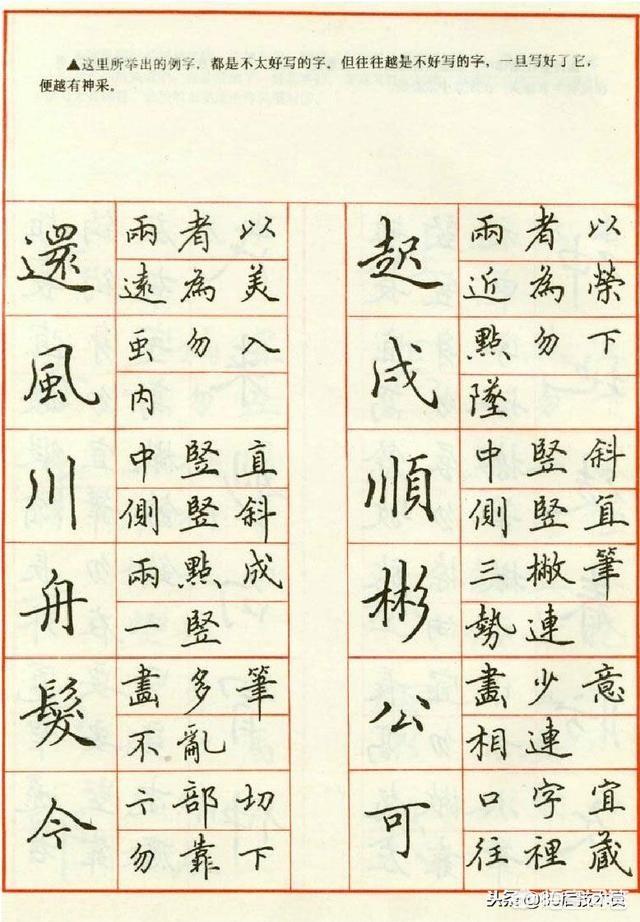 ▲这里所举出的例字，都是不太好写的字，但往往越是不好写的字，一旦写好了它，
便越有神采。
還
兩者以
遠為美
風
虫勿入
內
川
中豎直
側豎斜
舟
兩點成
一豎
髮
畫多筆
不亂
今
下部切
勿靠下
起
兩者以
近為榮
戍
點勿下
墜
順
中豎斜
側豎直
彬
三撇筆
勢連
公
畫少意
相連
可
口字宜
往裡藏
头条 @80后技术员